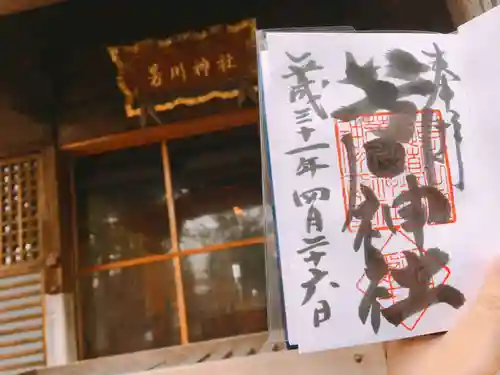 川神社
奉拝
神社
平成三十一年四月二十六日